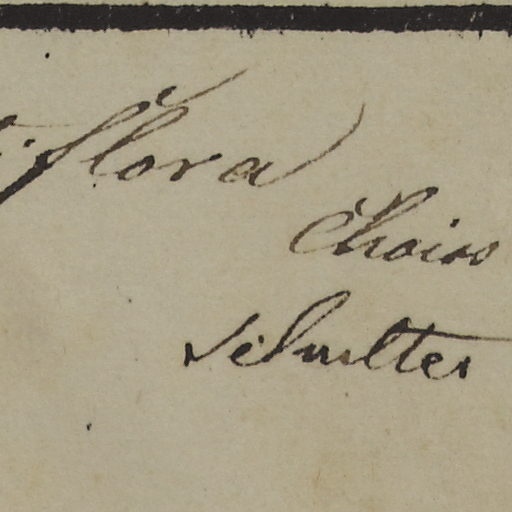 flora
Chois
Schulter